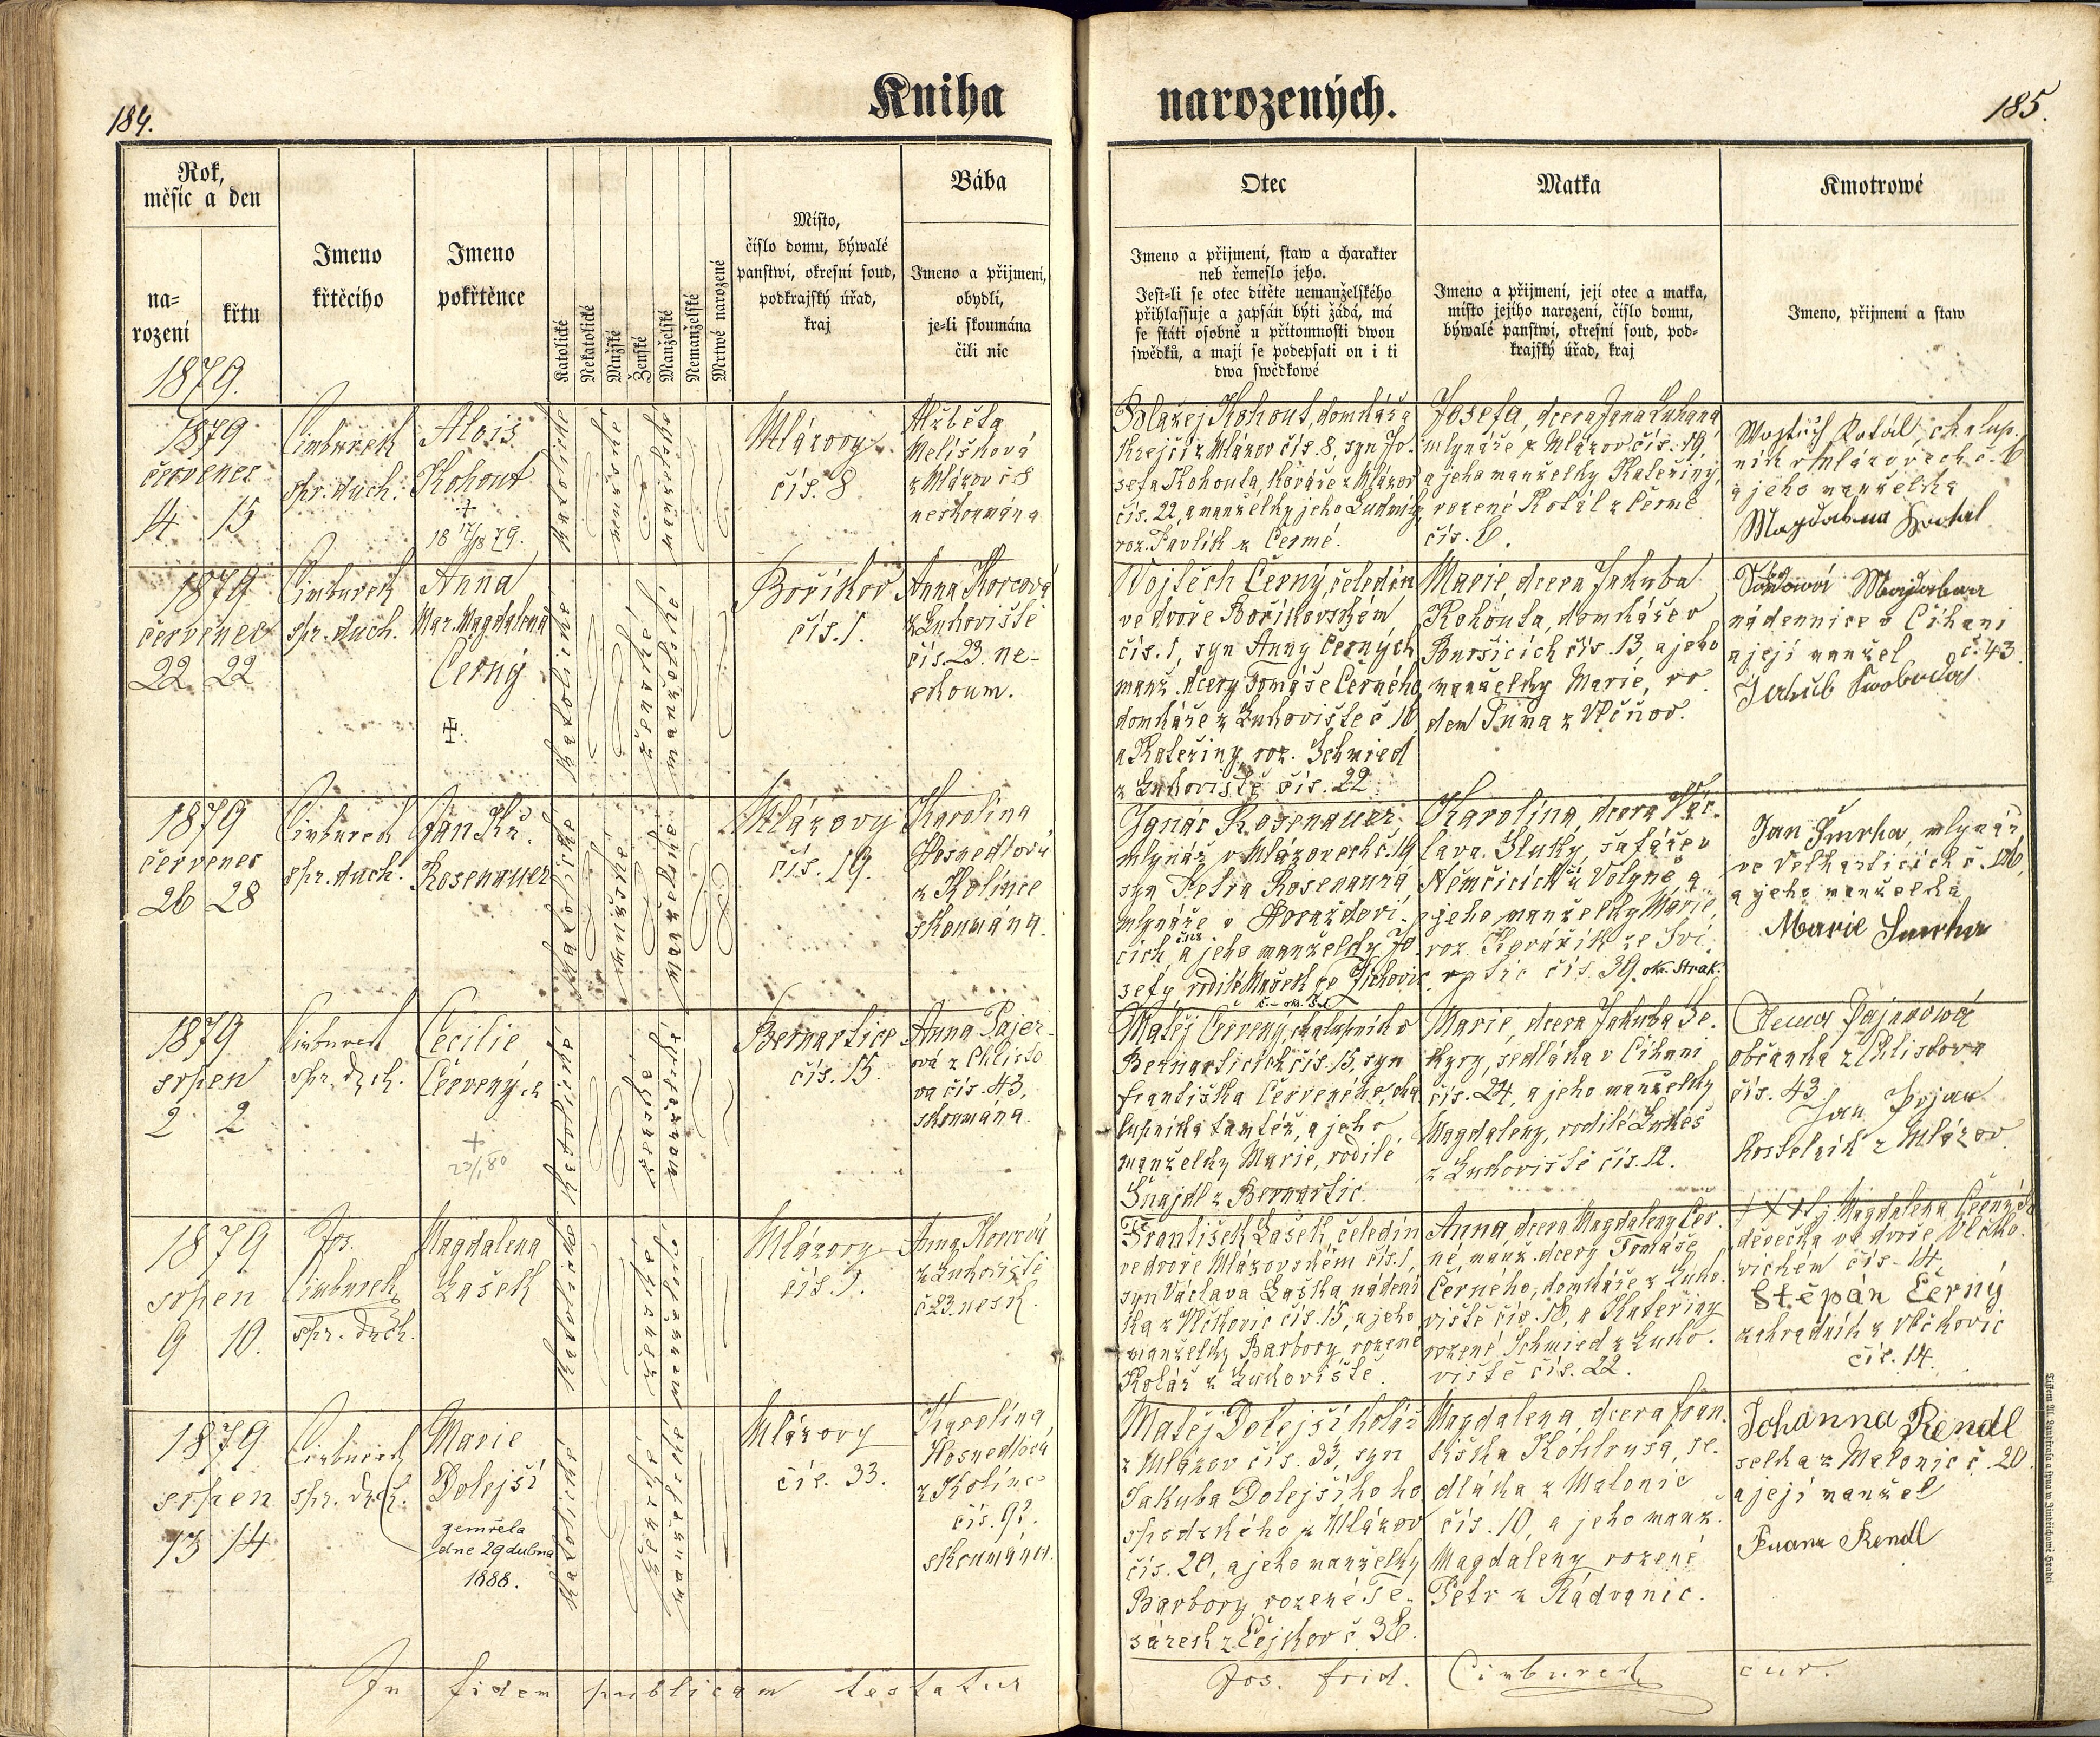 184.
Kniha
narozených.
185.
Rok,
měsíc a den
na-
rození
křtu
1879.
Jmeno
křtěcího
Jmeno
pokřtěnce
Katolické
Nekatolické
Mužské
Ženské
Manželské
Nemanželské
Mrtwé narozené
Místo,
číslo domu, býwalé
panstwí, okresní soud,
podkrajský úřad,
kraj
Bába
Jmeno a přijmení,
obydlí,
je-li skoumána
čili nic
Otec
Jmeno a přijmení, staw a charakter
neb řemeslo jeho.
Jest-li se otec dítěte nemanželského
přihlassuje a zapsán býti žádá, má
se státi osobně u přítomnosti dwou
swědků, a mají se podepsati on i ti
dwa swědkowé
Matka
Jmeno a přijmení, její otec a matka,
místo jejího narození, číslo domu,
býwalé panstwí, okresní soud, pod-
krajský úřad, kraj
Kmotrowé
Jmeno, přijmení a staw
1879
červenec
14 15
Cimburek
spr. duch.
Alois
Kohout
+
18 17/8 79.
katolické
mužské
manželské
Mlázovy
čís. 8
Alžběta
Melišková
z Mlázov č 8
neskoumána
Blažej Kohout, domkář a
krejčí z Mlázov čís. 8, syn Jo-
sefa Kohouta, kováře z Mlázov
čís. 22, a manželky jeho Ludmily
roz. Pavlík z Černé.
Josefa, dcera Jana
mlynáře z Mlázov čís. 19,
a jeho manželky Kateřiny,
rozené Kotál z Černé
čís. 6.
Wojtěch Kotál, chalup-
ník v Mlázovech č. 6
a jeho manželka
Magdalena Kotal
1879
červenec
22 22
Cimburek
spr. duch.
Anna
Mar. Magdalena
Černý
+.
katolické
ženské
manželské
Boříkov
čís. 1.
Anna Korcová
z Lukoviště
čís. 23. ne-
skoum.
Wojtěch Černý, čeledín
ve dvoře Boříkovském
čís. 1, syn Anny Černých
manž. dcery Tomáše Černého
domkáře z Lukoviště č 18
a Kateřiny, roz. Schmied
z Lukoviště čís. 22.
Marie, dcera Jakuba
Kohouta, domkáře v
Buršicích čís. 13, a jeho
manželky Marie, ro
dem Tuma z Vlčňov.
Magdalena
nádennice v Číhani
a její manžel č. 43.
Jakub Swoboda
1879
červenec
26 28
Cimburek
spr. duch.
Jan Kř.
Rosenauer
katolické
mužské
manželské
Mlázovy
čís. 19.
Karolina
Hosnedlová
z Kolince
skoumána.
Ignác Rosenauer
mlynář v Mlázovech č. 19
syn Petra Rosenaura
mlynáře v Horažďovi-
cích a jeho manželky Jo-
sefy rodilé Mašek ze Žichovic
Karolína dcera Vác-
lava Hluky, šafáře v
Němčicích u Volyně a
jeho manželky Marie,
roz. Kovářík ze Svi-
ratic čís. 39. ok. Strak.
Jan Smrha, mlynář
ve Velharticích č. 126,
a jeho manželka
Marie Smrha
1879
srpen
2 2
Cimburek
spr. dch.
Cecilie
Červený
+
23/1 80
katolické
ženské
manželské
Bernartice
čís. 15.
Anna Pajer-
ová z Chlisto
va čís. 43,
skoumána.
Matěj Červený, chalupník v
Bernarticích čís. 15, syn
Františka Červeného, cha
lupníka tamtéž, a jeho
manželky Marie, rodilé
Šnajdl z Bernartic.
Marie, dcera Jakuba Se-
kyry, sedláka v Číhani
čís. 24, a jeho manželky
Magdaleny, rodilé Lukeš
z Lukoviště čís. 12.
Anna Pajanowá
občanka z Chlistova
čís. 43
Jan Pojan
kostelník z Mlázov
1879
srpen
9 10.
Jos.
Cimburek
spr. dch.
Magdalena
Lašek
katolické
ženské
manželské
Mlázovy
čís. 1.
Anna Korcová
z Lukoviště
č 23. nesk.
František Lašek, čeledín
ve dvoře Mlázovském čís. 1,
syn Václava Laška nádení
ka z Vlčkovic čís. 15, a jeho
manželky Barbory rozené
Kolář z Lukoviště.
Anna, dcera Magdaleny Čer-
né, manž. dcery Tomáše
Černého, domkáře z Luko-
viště čís. 18, a Kateřiny
rozené Schmied z Luko-
viště čís. 22.
+ + + Magdalena Černých
děvečka ve dvoře Vlčko-
vickém čís. 14.
Štěpán Černý
zahradník z Vlčkovic
čís. 14.
1879
srpen
13 14
Cimburek
spr. dch.
Marie
Dolejší
zemřela
dne 29 dubna
1888.
katolické
ženské
manželské
Mlázovy
čís. 33.
Karolína
Hosnedlová
z Kolince
čís. 92.
skoumána.
Matěj Dolejší kolář
z Mlázov čís. 33, syn
Jakuba Dolejšího ho
spodského z Mlázov
čís. 20, a jeho manželky
Barbory rozené Te-
sárek z Čejkov č. 36.
Magdalena, dcera Fran-
tiška Kohlrusa, se-
dláka z Malonic
čís. 10, a jeho manž.
Magdaleny rozené
Petr z Rádvanic.
Johanna Rendl
selka z Malonic č. 20.
a její manžel
Franz Rendl
In fidem publicam testatur
Jos. Frid. Cimburek cur.